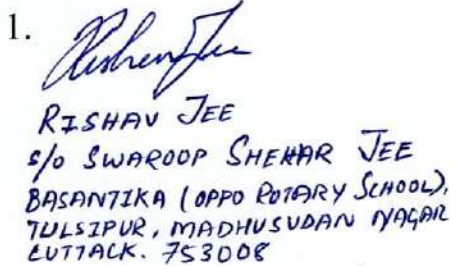 1. Rishav Jee
RISHAV JEE
S/O SWAROOP SHEKHAR JEE
BASANTIKA (OPPO ROTARY SCHOOL),
TULSIPUR, MADHUSUDAN NAGAR
CUTTACK. 753008